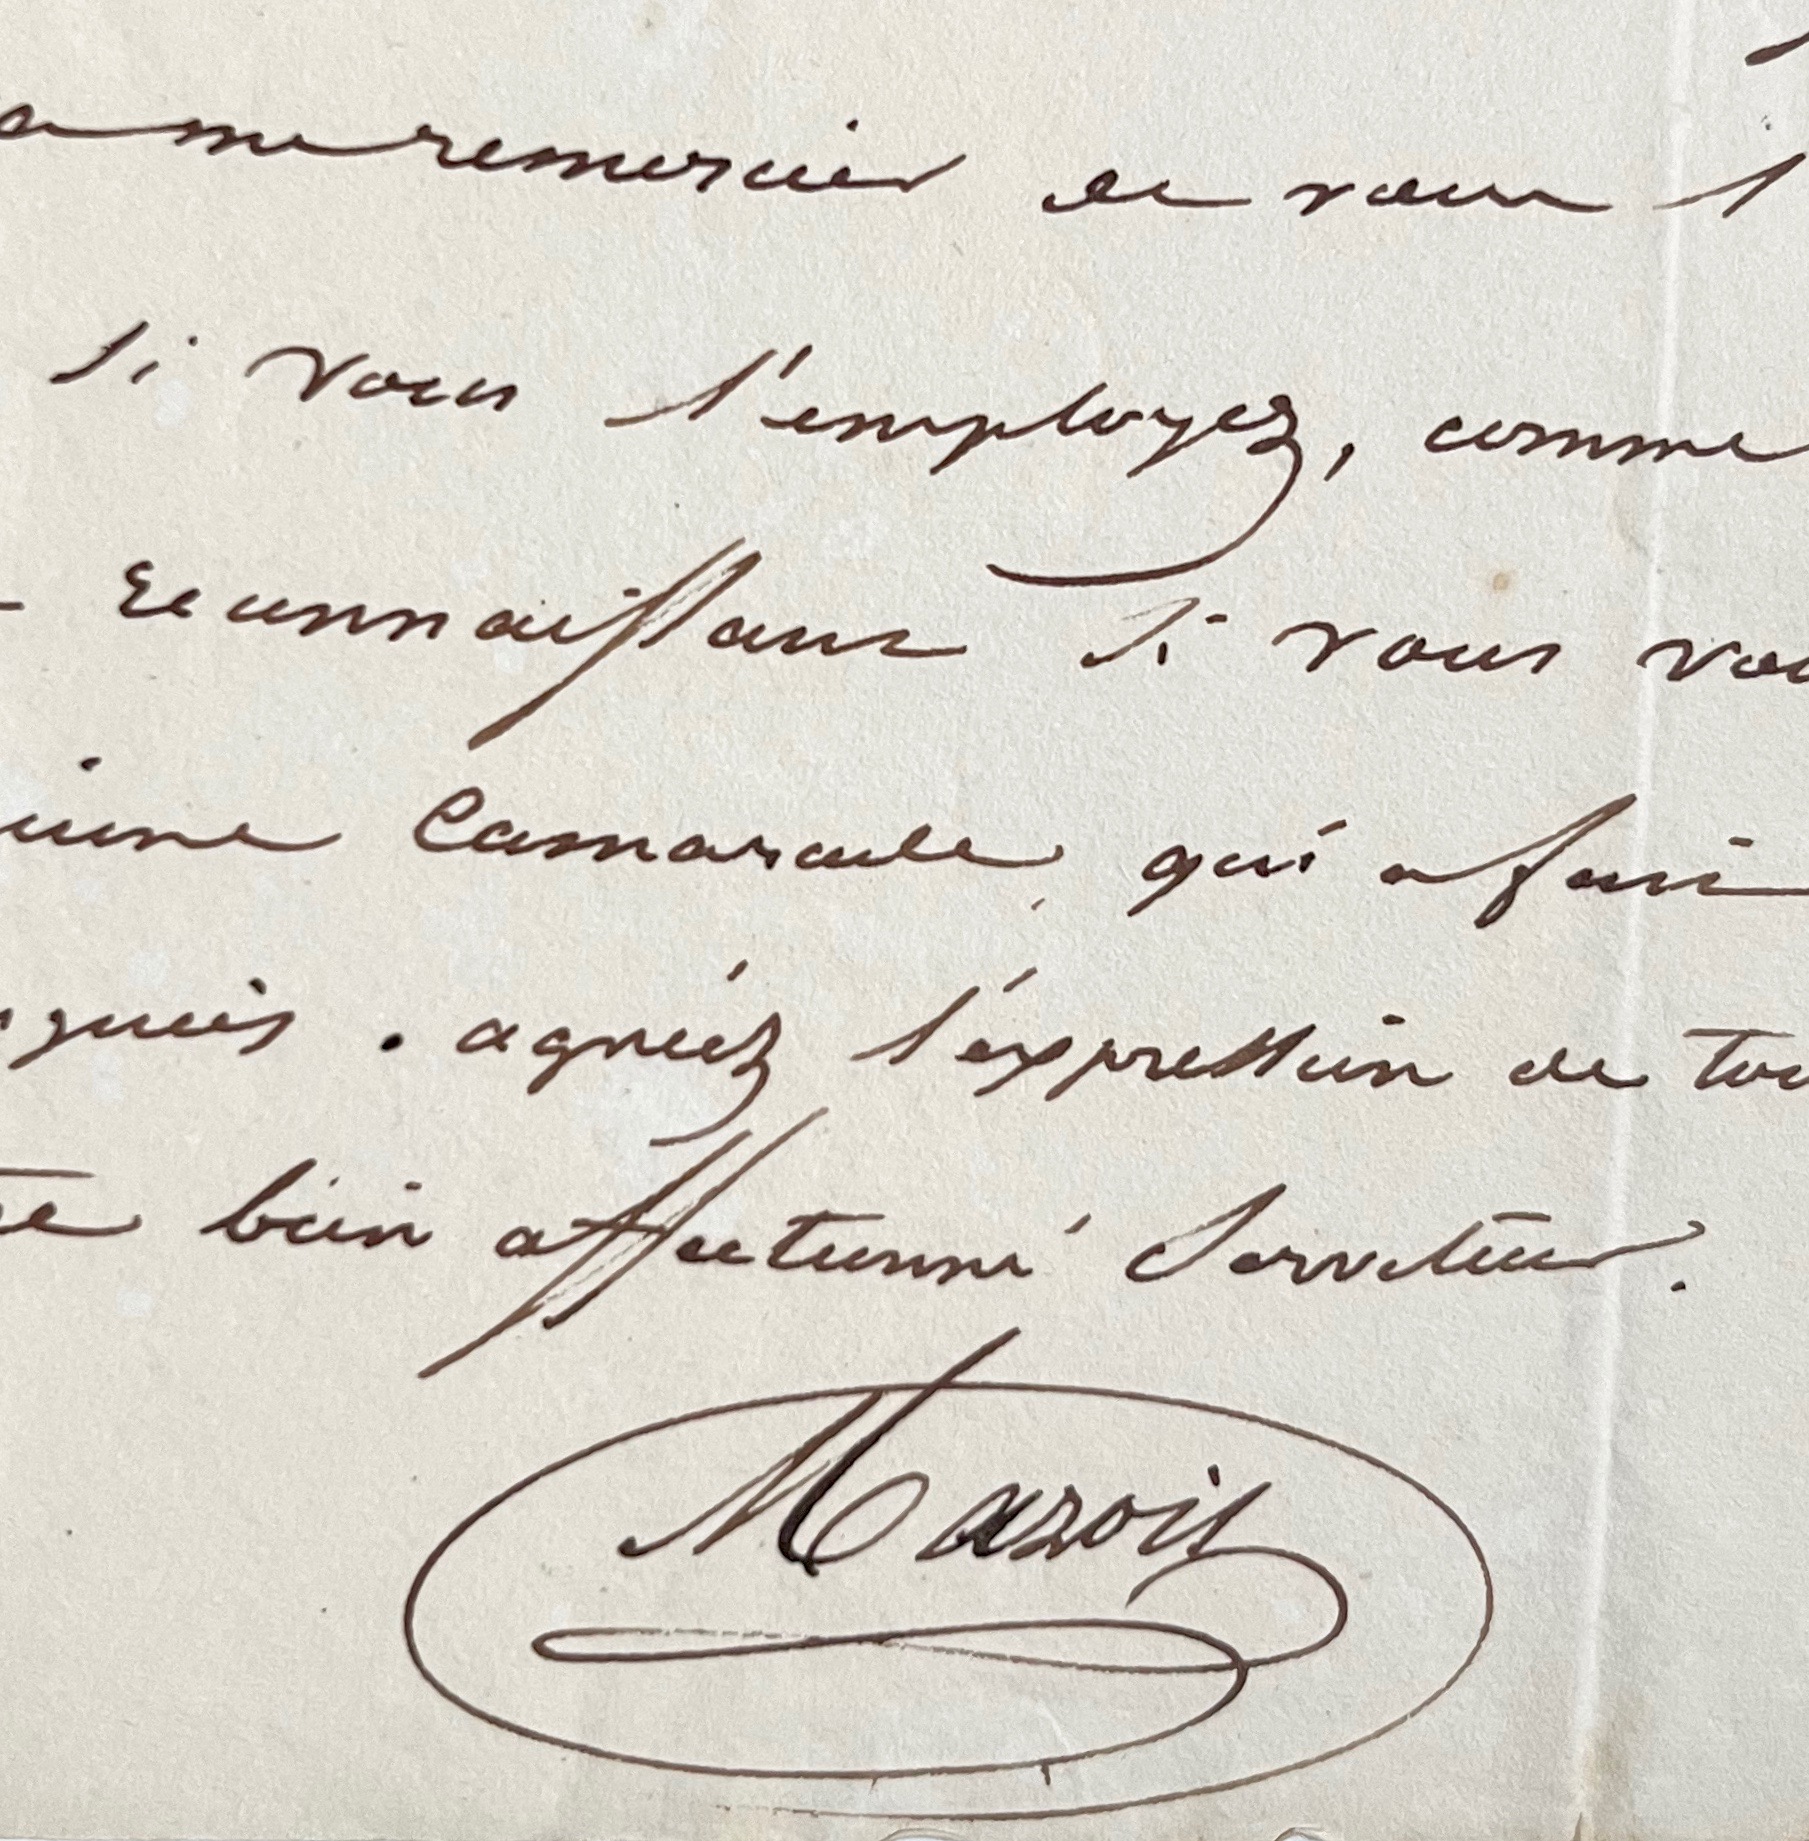 a me remercier de vous l'
si vous l'employez, comme
reconnaissant si vous vou
jeune Camarade qui a fini
agréez l'expression de tou
bien affectionné Serviteur.
Mazois